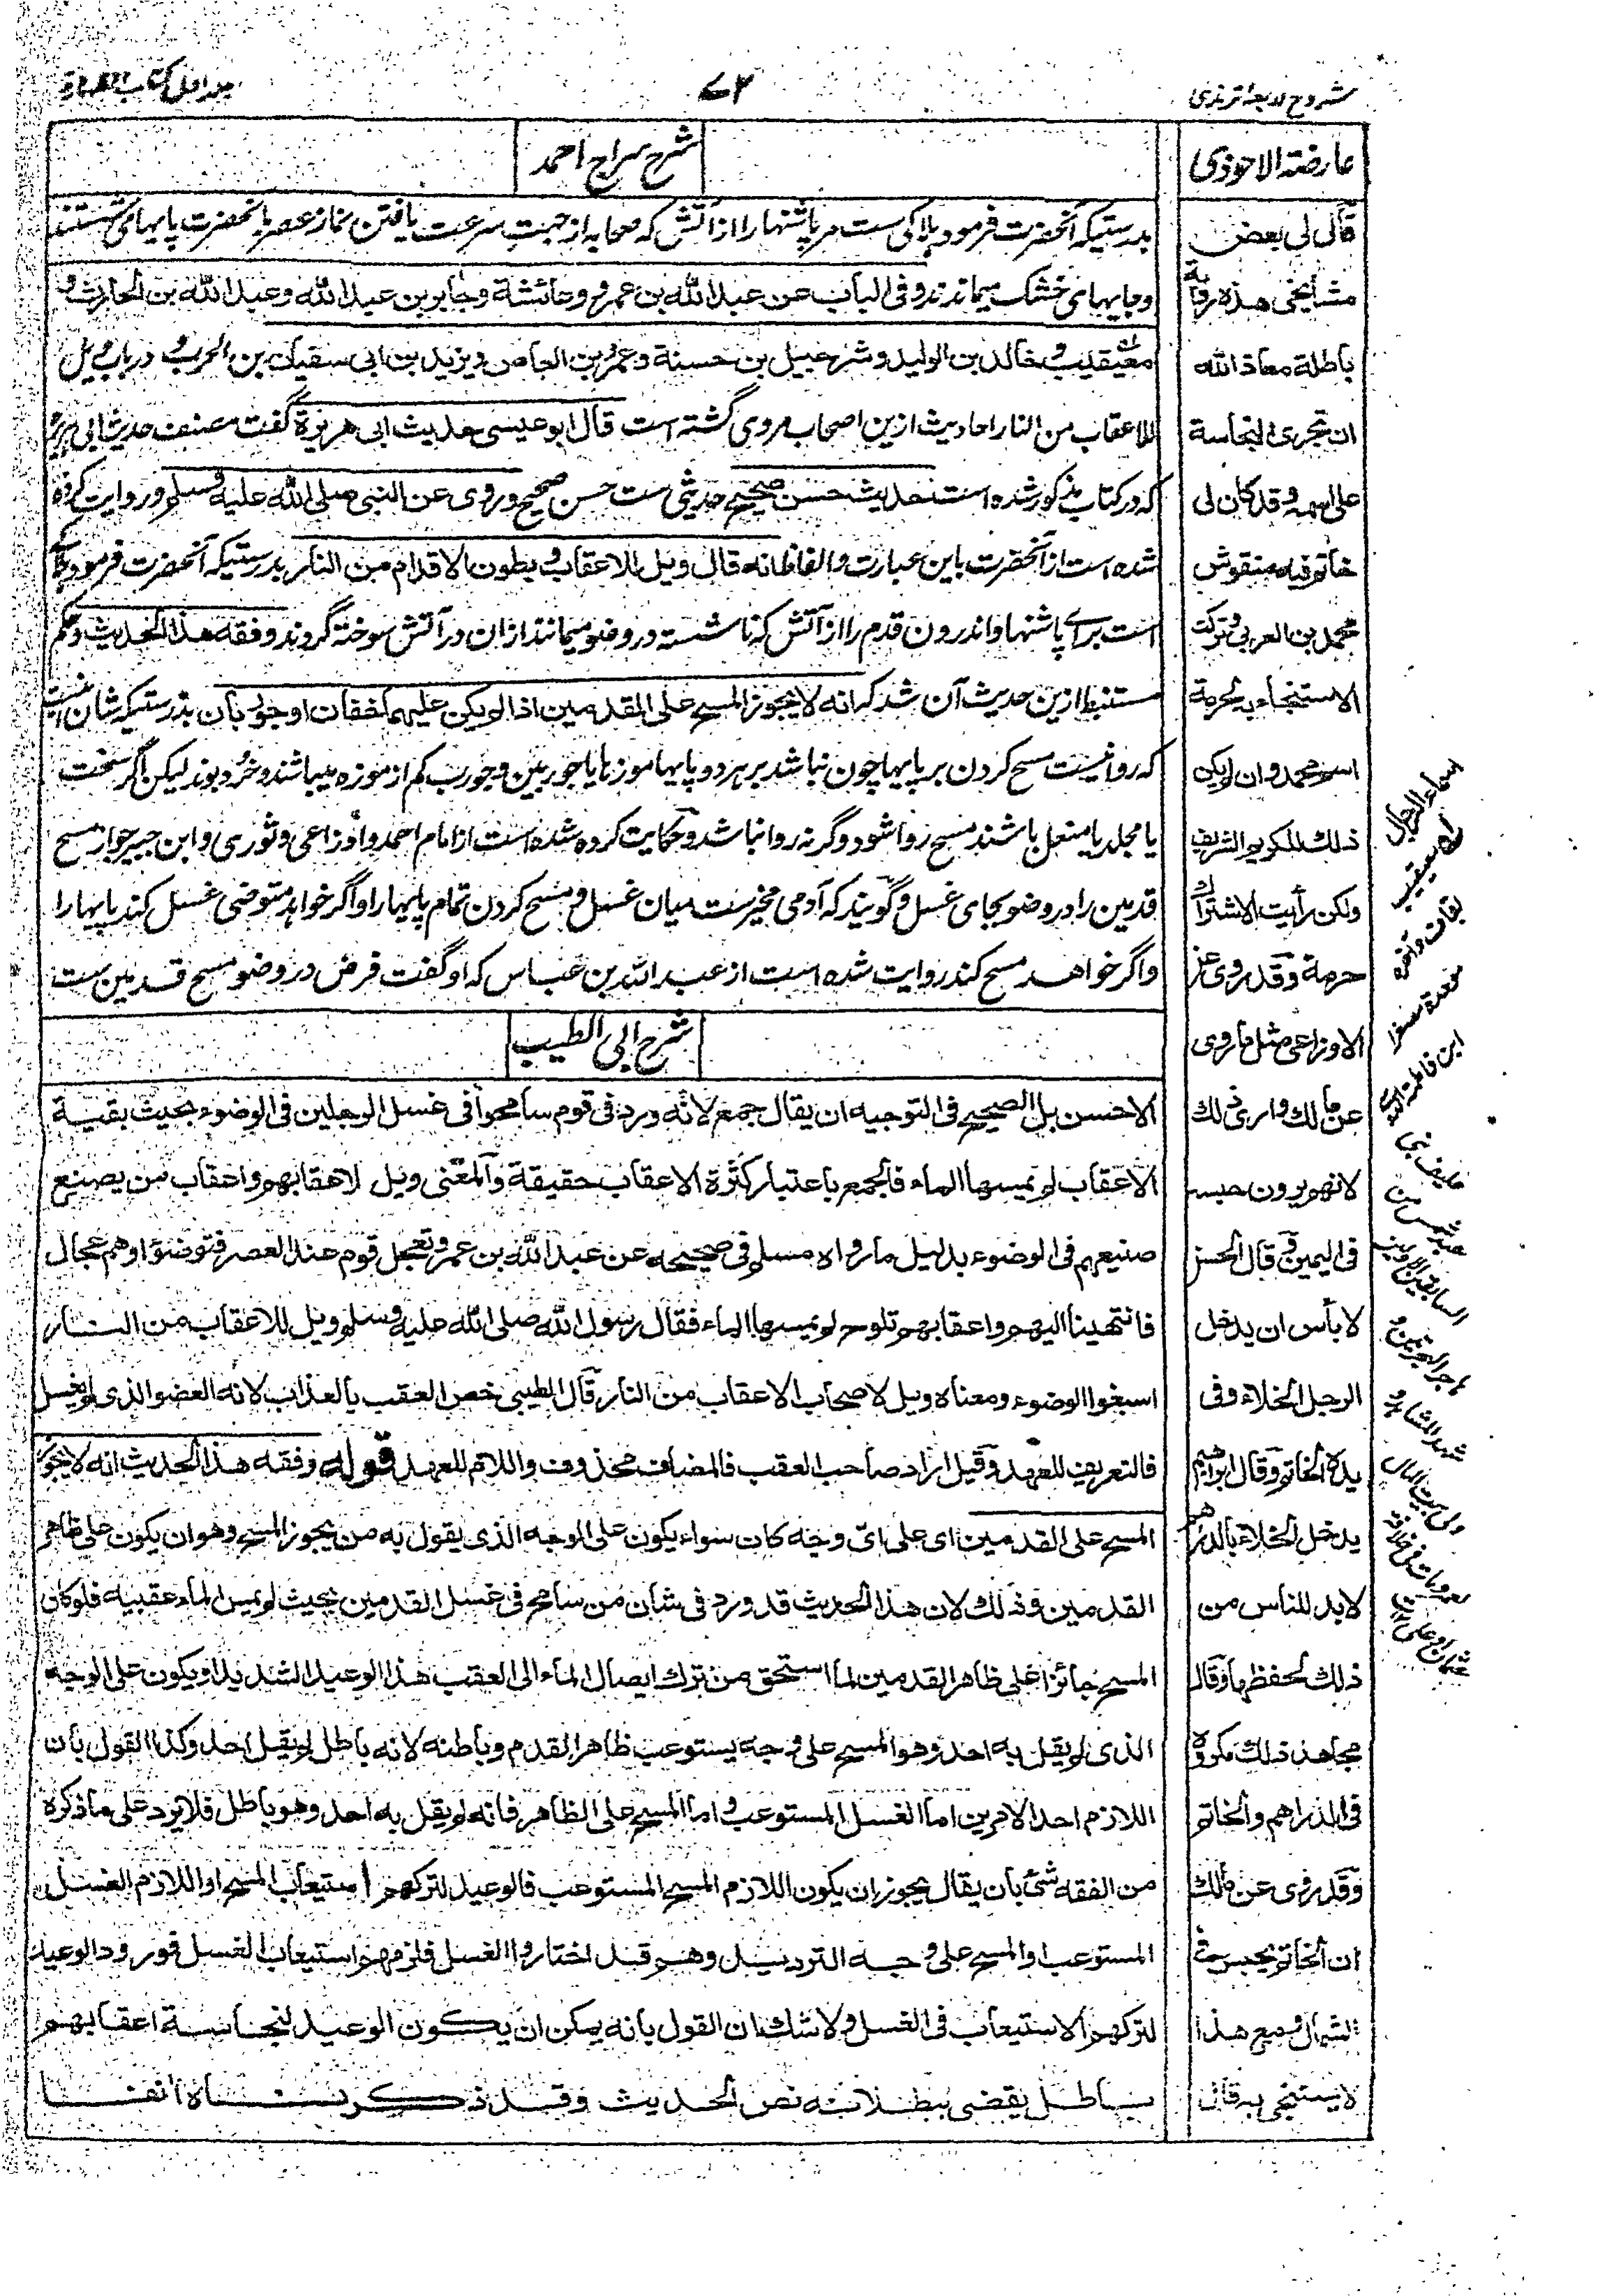 شروح اربعه ترمذی
۷۲
جلد اول کتاب الطهارة
عارضة الاحوذی
قال لی بعض
مشائخی هذه رواية
باطلة معاذ الله
ان تجری النجاسة
علی اسمه وقد كان لی
خاتم فيه منقوش
محمد بن العربی وتركت
الاستنجاء به لحرمة
اسم محمد وان لم يكن
ذلك الكريم الشريف
ولكن رأيت الاشتراك
حرمة وقد روی عن
الاوزاعی مثل ما روی
عن مالك واری ذلك
لانهم يرون حبسه
فی اليمين وقال الحسن
لا بأس ان يدخل
الرجل الخلاء وفی
يده الخاتم وقال ابراهيم
يدخل الخلاء بالدراهم
لابد للناس من
ذلك لحفظها وقال
مجاهد ذلك مكروه
فی الدراهم والخاتم
وقد روی عن مالك
ان الخاتم يحبس فی
الشمال ومع هذا
لا يستنجی به قال
شرح سراج احمد
بدرستیکه آنحضرت فرمود هلاکی ست مر پاشنها را از آتش که صحابه از جهت سرعت یافتن نماز عصر با آنحضرت پایها می شستند
وجایهای خشک میماندند وفی الباب عن عبد الله بن عمرو وعائشة وجابر بن عبد الله وعبد الله بن الحارث و
معيقيب وخالد بن الوليد وشرحبيل بن حسنة وعمرو بن العاص ويزيد بن ابی سفيان بن الحرب و در باب ویل
للاعقاب من النار احادیث ازین اصحاب مروی گشته است قال ابو عیسی حدیث ابی هریرة گفت مصنف حدیث ابی هریره
که در کتاب مذکور شده است حدیث حسن صحیح حدیثی ست حسن صحیح وروی عن النبی صلی الله علیه وسلم وروایت کرده
شده است از آنحضرت باین عبارت والفاظ انه قال ويل للاعقاب وبطون الاقدام من النار بدرستیکه آنحضرت فرمود هلاکی
است برای پاشنها واندرون قدم را از آتش که ناشسته در وضو میمانند ازان در آتش سوخته گردند وفقه هذا الحديث وحکم
مستنبط ازین حدیث آن شد که انه لا يجوز المسح علی القدمين اذا لم يكن عليهما خفان او جوربان بدرستیکه شان اینست
که روا نیست مسح کردن بر پایها چون نباشد بر هر دو پایها موزها یا جوربین وجورب کم از موزه میباشند وخرد بوند لیکن اگر سخت
یا مجلد یا منعل باشند مسح روا شود وگرنه روا نباشد وحکایت کرده شده است از امام احمد واوزاعی وثوری وابن جبیر جواز مسح
قدمین را در وضو بجای غسل وگویند که آدمی مخیر ست میان غسل ومسح کردن تمام پایها را واگر خواهد متوضی غسل کند پایها را
واگر خواهد مسح کند روایت شده است از عبد الله بن عباس که او گفت فرض در وضو مسح قدمین ست
شرح ابی الطیب
الاحسن بل الصحيح فی التوجيه ان يقال جمع لانه ورد فی قوم سامحوا فی غسل الرجلين فی الوضوء بحيث بقية
الاعقاب لم يمسها الماء فالجمع باعتبار كثرة الاعقاب حقيقة والمعنی ويل لاعقابهم واعقاب من يصنع
صنيعهم فی الوضوء بدليل ما رواه مسلم فی صحيحه عن عبد الله بن عمرو تعجل قوم عند العصر فتوضؤا وهم عجال
فانتهينا اليهم واعقابهم تلوح لم يمسها الماء فقال رسول الله صلی الله عليه وسلم ويل للاعقاب من النار
اسبغوا الوضوء ومعناه ويل لاصحاب الاعقاب من النار قال الطيبی خص العقب بالعذاب لانه العضو الذی لم يغسل
فالتعريف للعهد وقيل اراد صاحب العقب فالمضاف محذوف واللام للعهد قوله وفقه هذا الحديث انه لا يجوز
المسح علی القدمين ای علی ای وجه كان سواء يكون علی الوجه الذی يقول به من يجوز المسح وهو ان يكون علی ظاهر
القدمين وذلك لان هذا الحديث قد ورد فی شان من سامح فی غسل القدمين بحيث لم يمس الماء عقبيه فلو كان
المسح جائزا علی ظاهر القدمين لما استحق من ترك ايصال الماء الی العقب هذا الوعيد الشديد او يكون علی الوجه
الذی لم يقل به احد وهو المسح علی وجه يستوعب ظاهر القدم وباطنه لانه باطل لم يقل احد وكذا القول بان
اللازم احد الامرين اما الغسل المستوعب واما المسح علی الظاهر فانه لم يقل به احد وهو باطل فلا يرد علی ما ذكره
من الفقه شیء بان يقال يجوز ان يكون اللازم المسح المستوعب فالوعيد لتركهم استيعاب المسح او اللازم الغسل
المستوعب او المسح علی وجه الترديد وهم قد اختاروا الغسل فلزمهم استيعاب الغسل فورود الوعيد
لتركهم الاستيعاب فی الغسل ولا شك ان القول بانه يمكن ان يكون الوعيد لنجاسة اعقابهم
باطل يقضی ببطلانه نص الحديث وقد ذكرناه انفا
اسماء الرجال